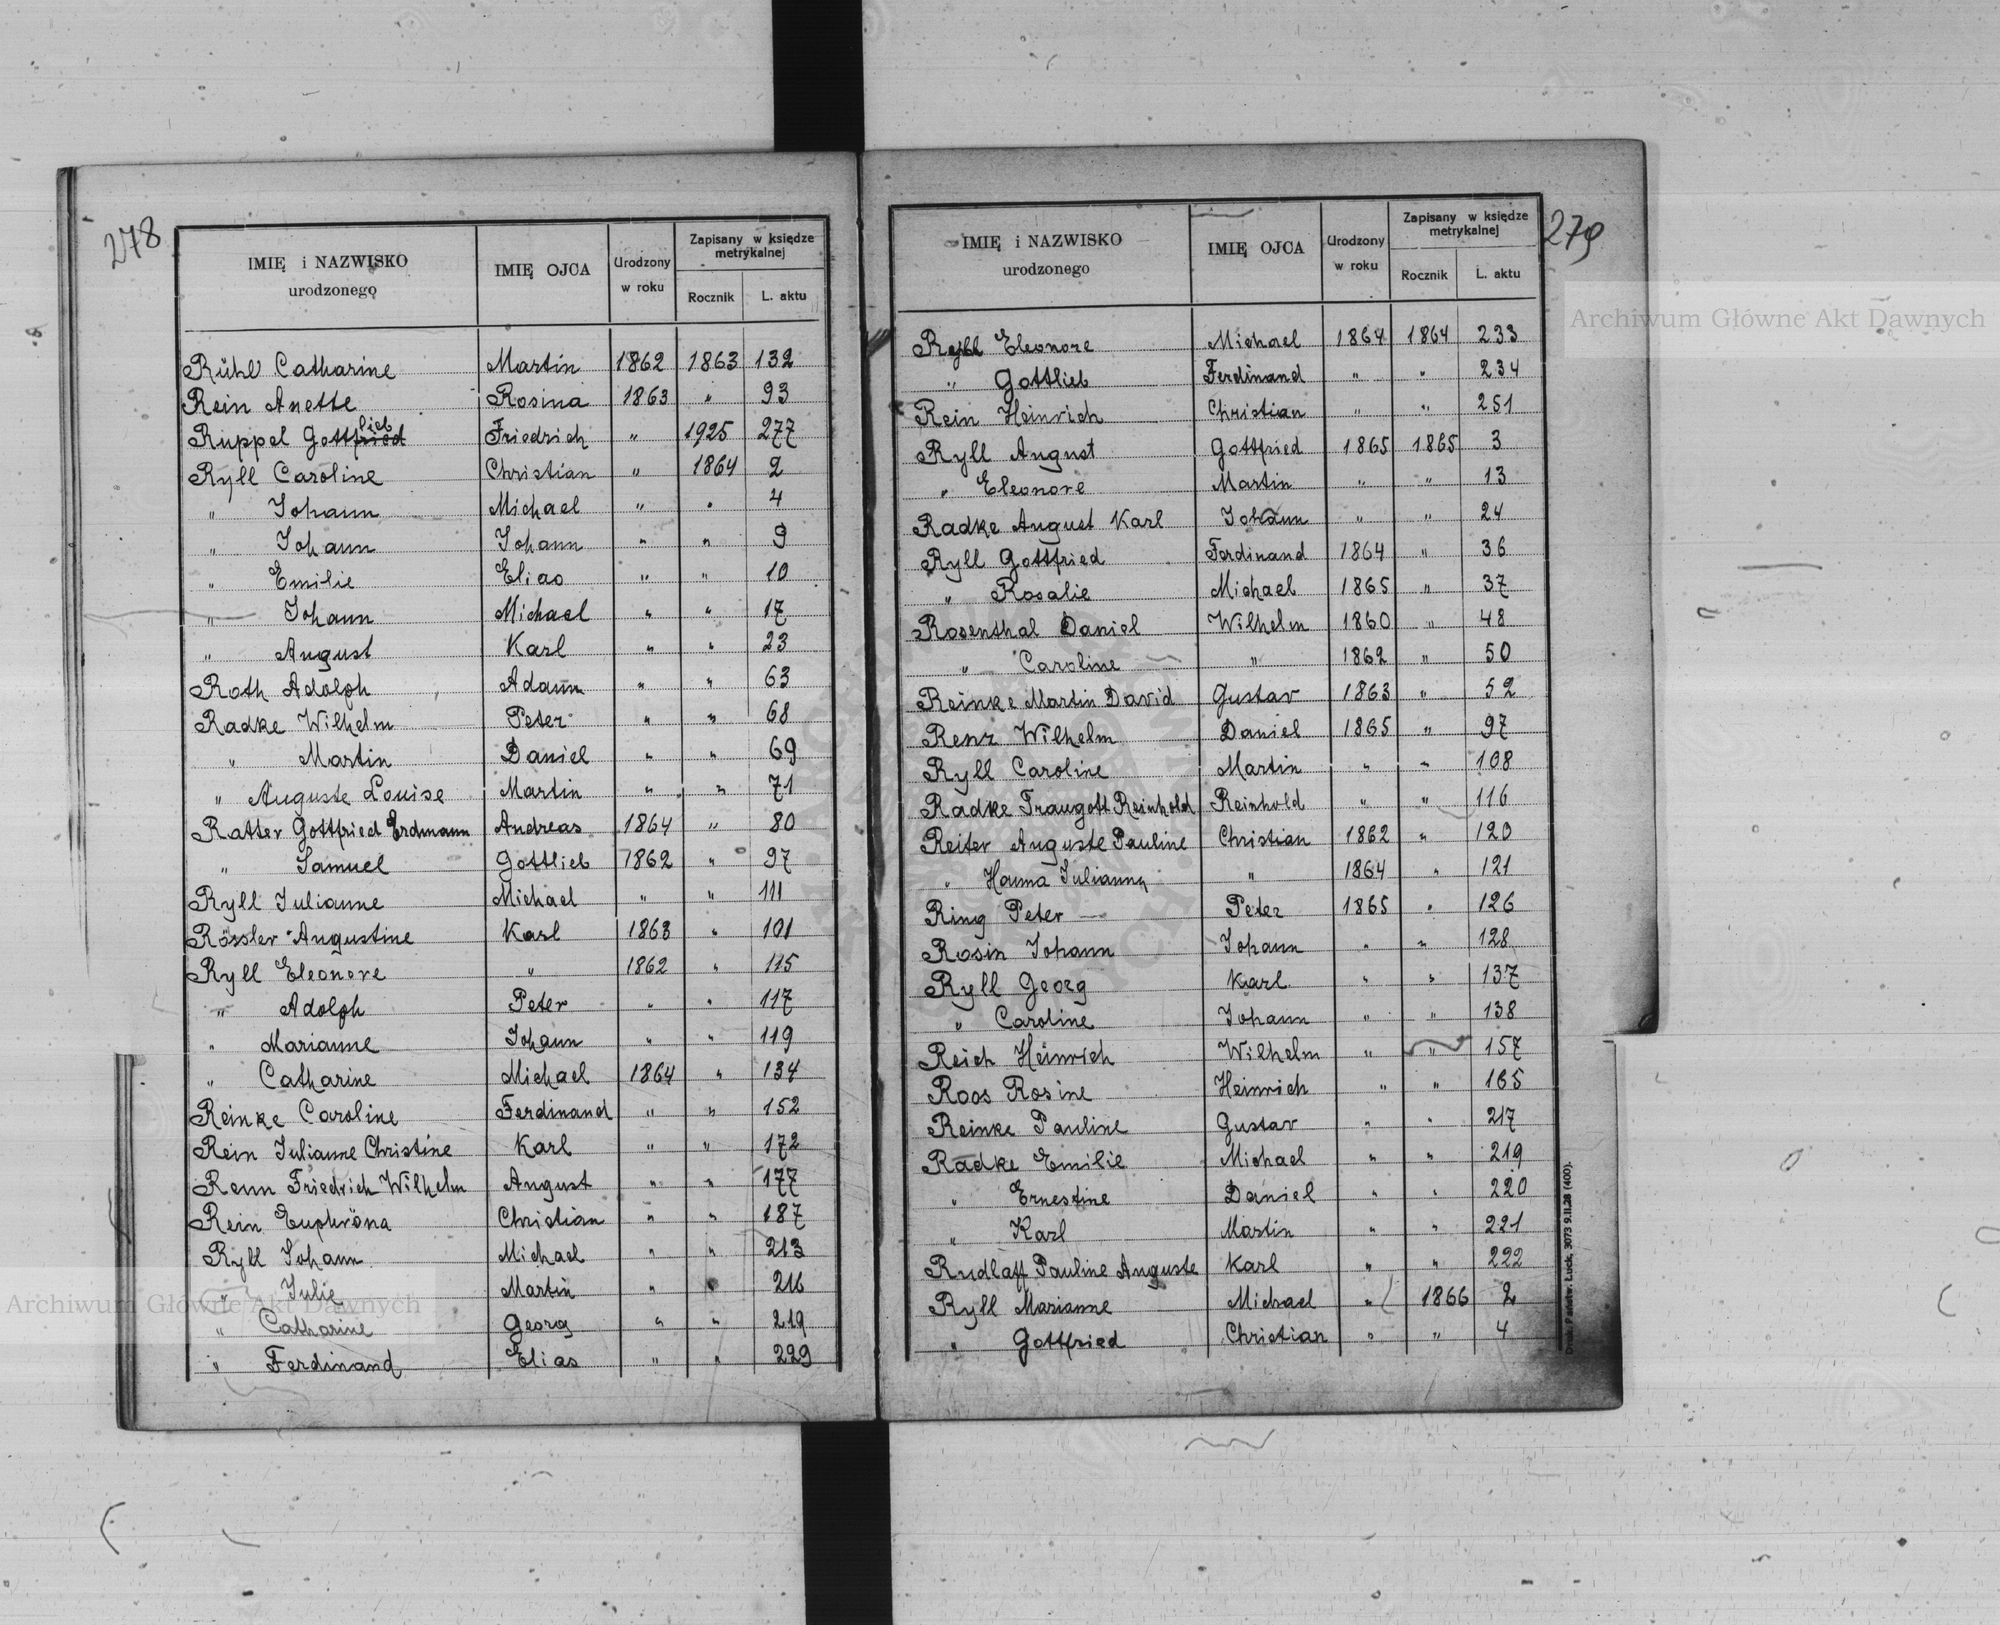 278
IMIĘ i NAZWISKO urodzonego | IMIĘ OJCA | Urodzony w roku | Zapisany w księdze metrykalnej
Rocznik | L. aktu
Rühl Catharine | Martin | 1862 | 1863 | 132
Rein Anette | Rosina | 1863 | " | 93
Ruppel Gottfried lieb | Friedrich | " | 1925 | 277
Ryll Caroline | Christian | " | 1864 | 2
" Johann | Michael | " | " | 4
" Johann | Johann | " | " | 9
" Emilie | Elias | " | " | 10
" Johann | Michael | " | " | 17
" August | Karl | " | " | 23
Roth Adolph | Adam | " | " | 63
Radke Wilhelm | Peter | " | " | 68
" Martin | Daniel | " | " | 69
" Auguste Louise | Martin | " | " | 71
Ratter Gottfried Erdmann | Andreas | 1864 | " | 80
" Samuel | Gottlieb | 1862 | " | 97
Ryll Julianne | Michael | " | " | 111
Rössler Augustine | Karl | 1863 | " | 101
Ryll Eleonore | " | 1862 | " | 115
" Adolph | Peter | " | " | 117
" Marianne | Johann | " | " | 119
" Catharine | Michael | 1864 | " | 134
Reinke Caroline | Ferdinand | " | " | 152
Rein Julianne Christine | Karl | " | " | 172
Renn Friedrich Wilhelm | August | " | " | 177
Rein Euphröna | Christian | " | " | 187
Ryll Johann | Michael | " | " | 213
" Julie | Martin | " | " | 216
" Catharine | Georg | " | " | 219
" Ferdinand | Elias | " | " | 229
279
IMIĘ i NAZWISKO urodzonego | IMIĘ OJCA | Urodzony w roku | Zapisany w księdze metrykalnej
Rocznik | L. aktu
Ryll Eleonore | Michael | 1864 | 1864 | 233
" Gottlieb | Ferdinand | " | " | 234
Rein Heinrich | Christian | " | " | 251
Ryll August | Gottfried | 1865 | 1865 | 3
" Eleonore | Martin | " | " | 13
Radke August Karl | Johann | " | " | 24
Ryll Gottfried | Ferdinand | 1864 | " | 36
" Rosalie | Michael | 1865 | " | 37
Rosenthal Daniel | Wilhelm | 1860 | " | 48
" Caroline | " | 1862 | " | 50
Reinke Martin David | Gustav | 1863 | " | 52
Renz Wilhelm | Daniel | 1865 | " | 97
Ryll Caroline | Martin | " | " | 108
Radke Traugott Reinhold | Reinhold | " | " | 116
Reiter Auguste Pauline | Christian | 1862 | " | 120
" Hanna Julianna | " | 1864 | " | 121
Ring Peter | Peter | 1865 | " | 126
Rosin Johann | Johann | " | " | 128
Ryll Georg | Karl | " | " | 137
" Caroline | Johann | " | " | 138
Reich Heinrich | Wilhelm | " | " | 157
Roos Rosine | Heinrich | " | " | 165
Reinke Pauline | Gustav | " | " | 217
Radke Emilie | Michael | " | " | 219
" Ernestine | Daniel | " | " | 220
" Karl | Martin | " | " | 221
Rudlaff Pauline Auguste | Karl | " | " | 222
Ryll Marianne | Michael | " | 1866 | 2
" Gottfried | Christian | " | " | 4
Druk. Państw. Łuck, 3073 9.II.28 (400).
Archiwum Główne Akt Dawnych
Archiwum Główne Akt Dawnych